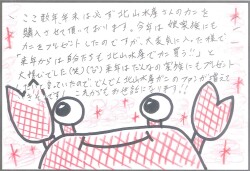 ここ数年年末は必ず北山水産さんのカニを
購入させて頂いております。今年は娘家族にも
カニをプレゼントしたのですが、大変気に入った様で
来年からは自分たちも北山水産でカニ買う!!と
大様でした(笑)(な)来年はだんなの家族にもプレゼント
言っていたので、どんどん北山水産がニのファンが増えて
ますね! これからもお世話になります!!